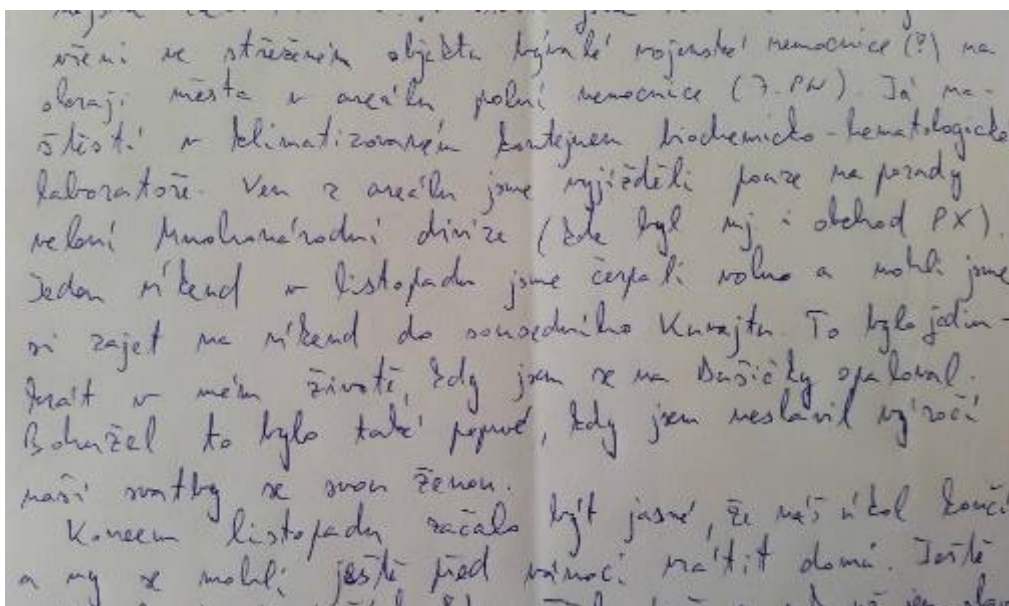 všeni ve střeženém objektu bývalé vojenské nemocnice (?) na
okraji města v areálu polní nemocnice (7. PN). Já na-
štěstí v klimatizovaném kontejneru biochemicko-hematologické
laboratoře. Ven z areálu jsme vyjížděli pouze na porady
velení Mnohonárodní divize (kde byl mj i obchod PX).
Jeden víkend v listopadu jsme čerpali volno a mohli jsme
si zajet na víkend do sousedního Kuvajtu. To bylo jedin-
krát v mém životě, kdy jsem se na Dušičky opaloval.
Bohužel to bylo také poprvé, kdy jsem neslavil výročí
naší svatby se svou ženou.
Koncem listopadu začalo být jasné, že náš úkol končí
a my se mohli ještě před vánoci vrátit domů. Ještě